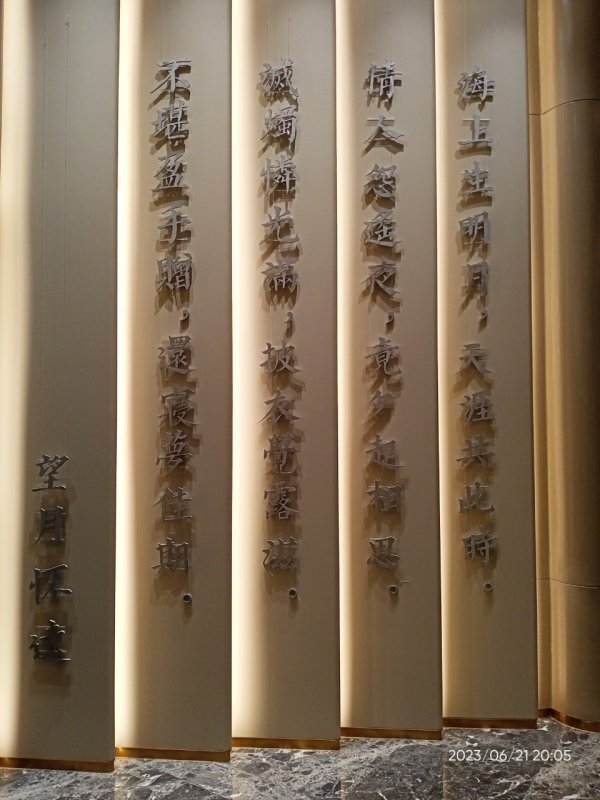 海上生明月，天涯共此時。
情人怨遙夜，竟夕起相思。
滅燭憐光滿，披衣覺露滋。
不堪盈手贈，還寢夢佳期。
望月怀遠
2023/06/21 20:05